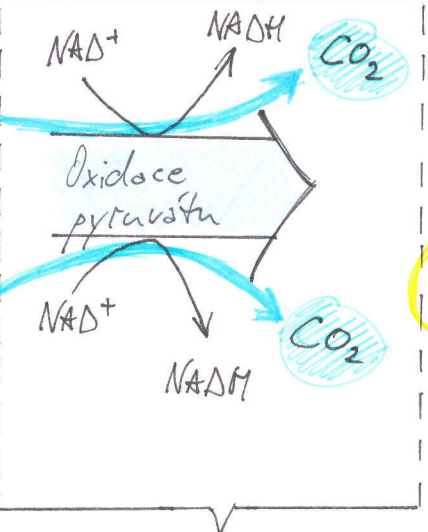 NAD+
NADH
CO2
Oxidace
pyruvátu
NAD+
CO2
NADH